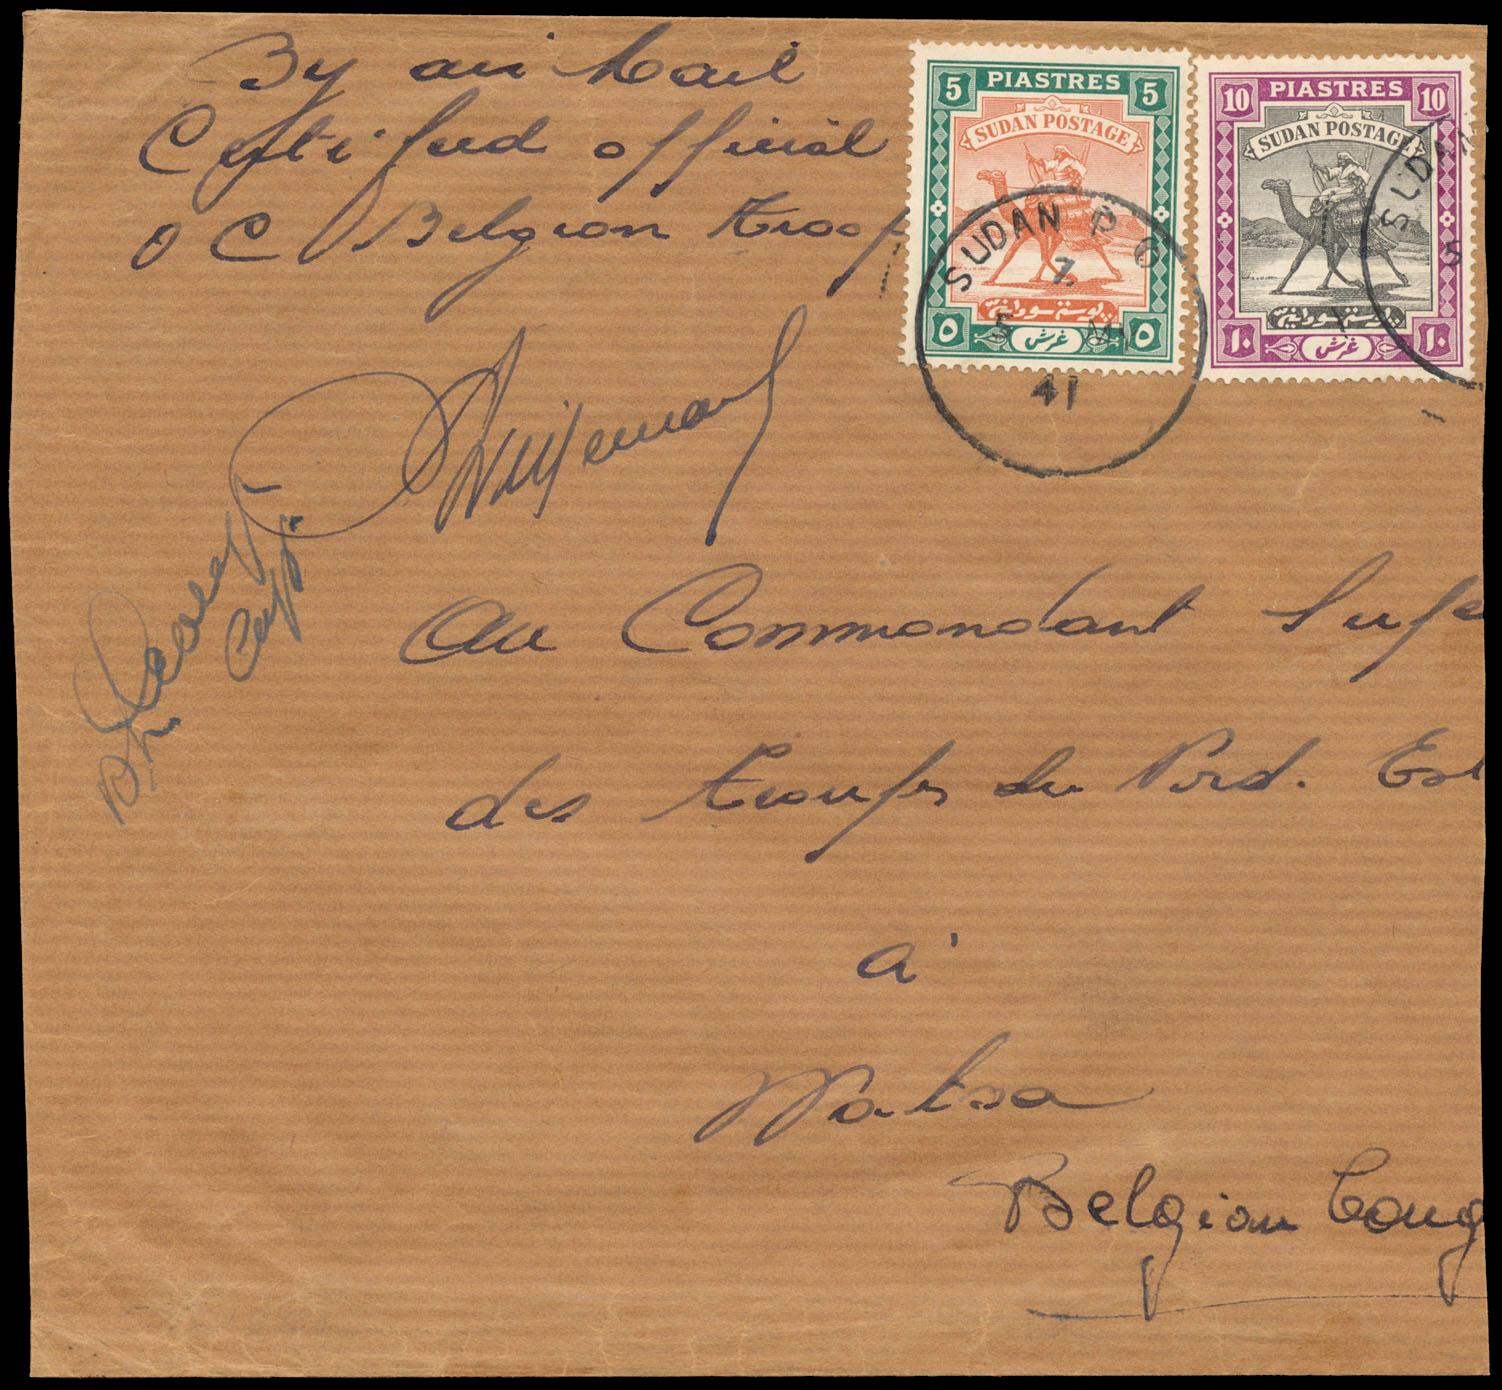 By air Mail
Certified official
O C Belgian Troop
5 PIASTRES 5
SUDAN POSTAGE
بوستة سودانية
٥ غرش ٥
10 PIASTRES 10
SUDAN POSTAGE
بوستة سودانية
١٠ غرش ١٠
SUDAN P O
7
5
41
SUDAN
5
Au Commandant Supe
des troupes du Nord. Est
à
Watsa
Belgian Cong